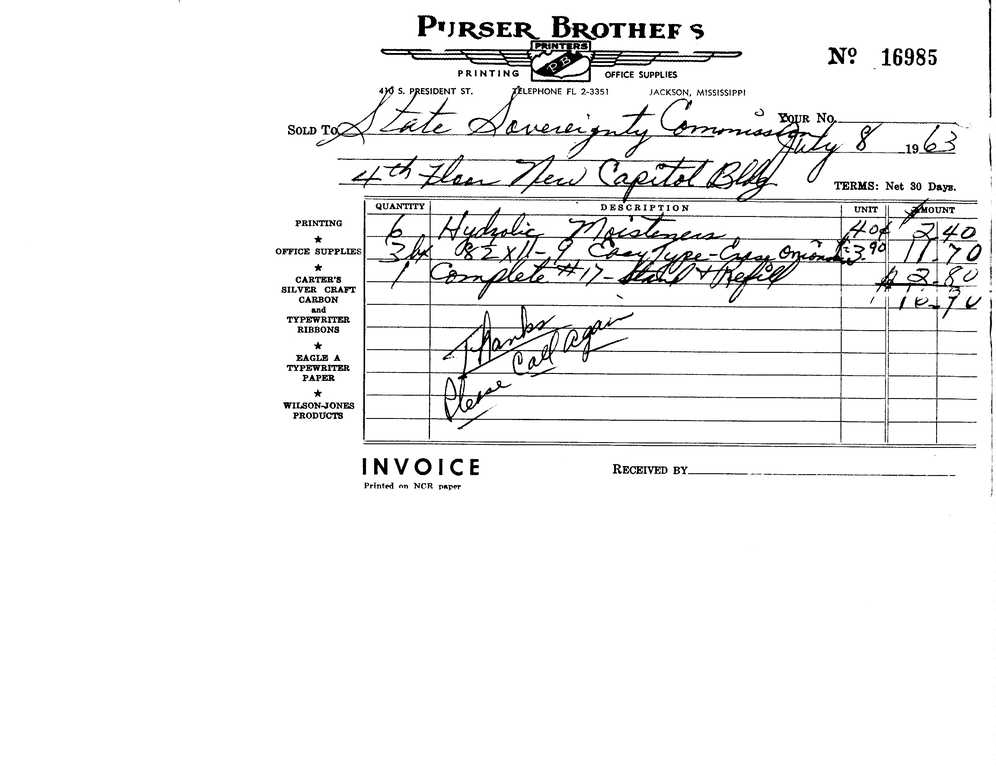 PURSER BROTHERS
PRINTERS
PB
PRINTING OFFICE SUPPLIES
No 16985
410 S. PRESIDENT ST. TELEPHONE FL 2-3351 JACKSON, MISSISSIPPI
YOUR No.
SOLD TO State Sovereignty Commission July 8 1963
4th Floor New Capitol Bldg TERMS: Net 30 Days.
QUANTITY DESCRIPTION UNIT AMOUNT
6 Hydrolic Moisteners 40¢ 2 40
3 bx 8½ x 11 - 9 Easy Type - Onion 3.90 11.70
1 Complete #17 - Stand & Refill $ 2.80
16.90
Thanks
Please Call Again
PRINTING
★
OFFICE SUPPLIES
★
CARTER'S
SILVER CRAFT
CARBON
and
TYPEWRITER
RIBBONS
★
EAGLE A
TYPEWRITER
PAPER
★
WILSON-JONES
PRODUCTS
INVOICE
RECEIVED BY
Printed on NCR paper